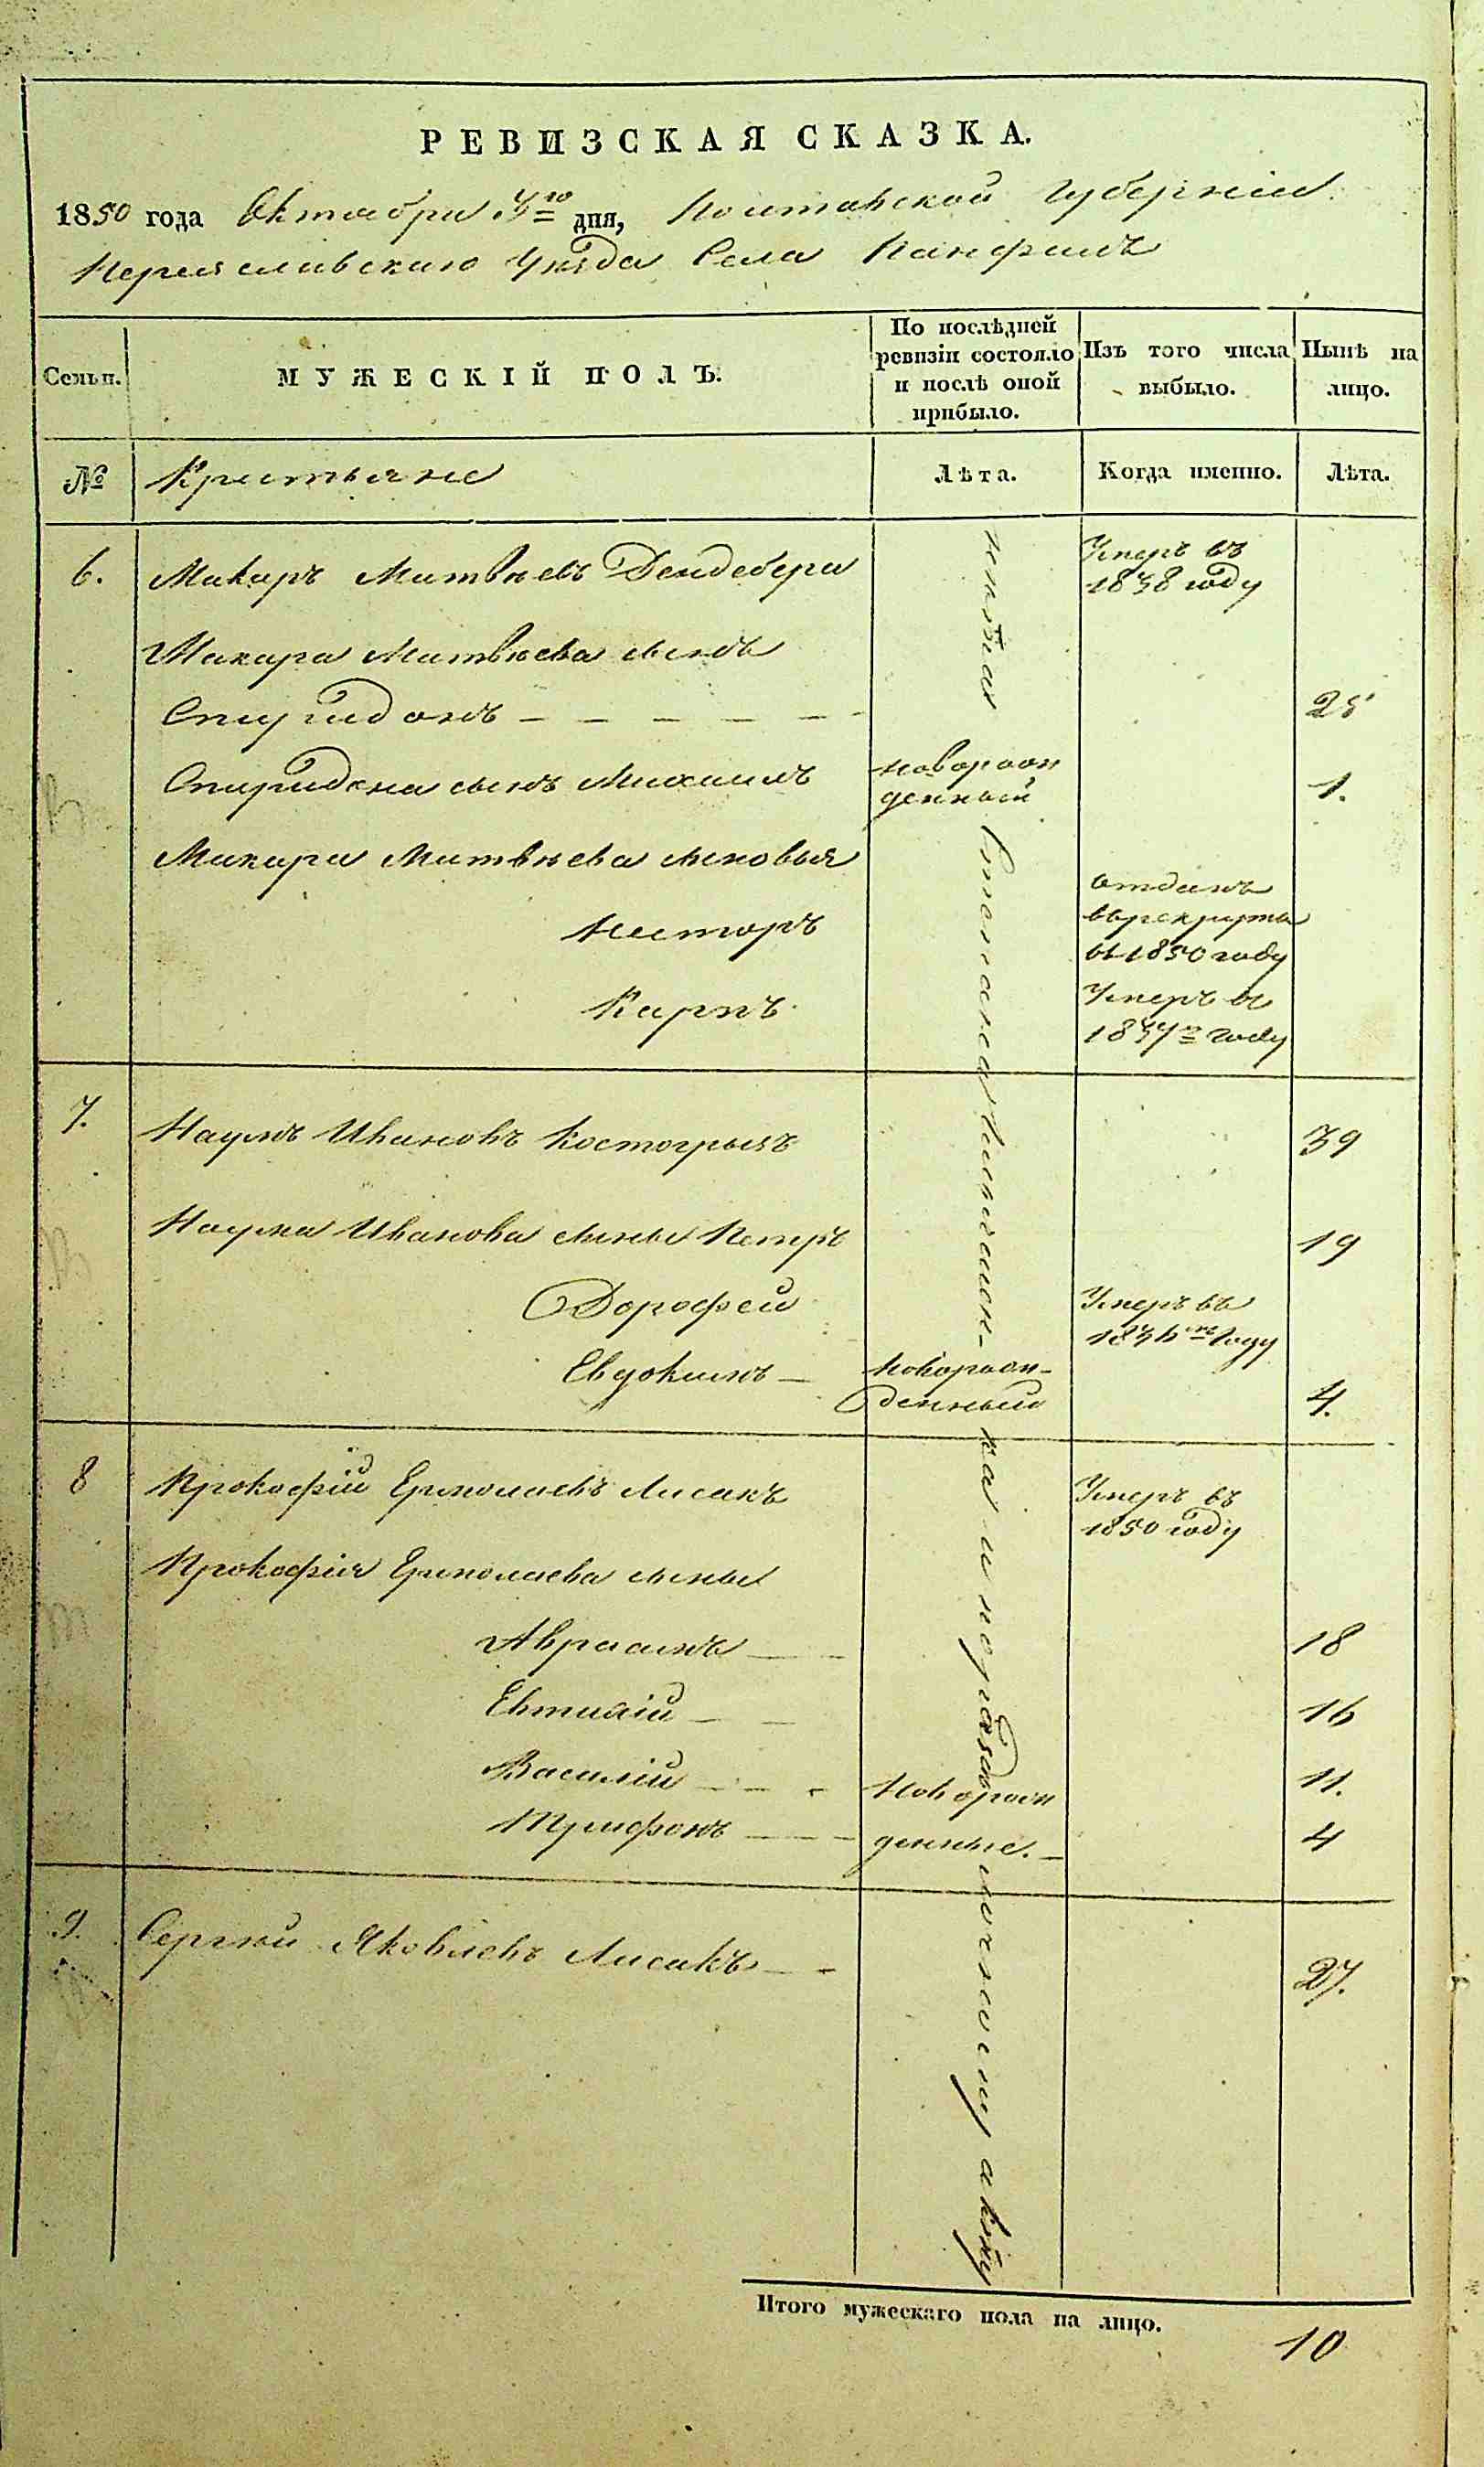 РЕВИЗСКАЯ СКАЗКА.
1850 года Октября 3го дня, Полтавской Губерніи
Переяславскаго Уѣзда Села Панфилъ
Семьи.
МУЖЕСКІЙ ПОЛЪ.
По послѣдней ревизіи состояло и послѣ оной прибыло.
Изъ того числа выбыло.
Нынѣ на лицо.
№ Крестьяне Лѣта. Когда именно. Лѣта.
6. Макаръ Матвѣевъ Дендебера Умеръ въ
1838 году
Макара Матвѣева сынъ
Спиридонъ - - - - - 25
Спиридона сынъ Михаилъ новорож
денный 1.
Макара Матвѣева сыновья
Несторъ отданъ
въ рекруты
въ 1850 году
Карпъ Умеръ въ
году
7. Наумъ Ивановъ Костогрызъ 39
Наума Иванова сыны Петръ 19
Дорофей Умеръ въ
году
Евдокимъ — новорож-
денный 4.
8 Прокофій Ермолаевъ Лисакъ Умеръ въ
1850 году
Прокофія Ермолаева сыны
Авраамъ — - 18
Евтихій - - 16
Василій - - - Новорож 11.
Трифонъ — - денные. - 4
9. Сергѣй Яковлевъ Лисакъ - - 27.
лѣта
и по
акту
Итого мужескаго пола на лицо.
10